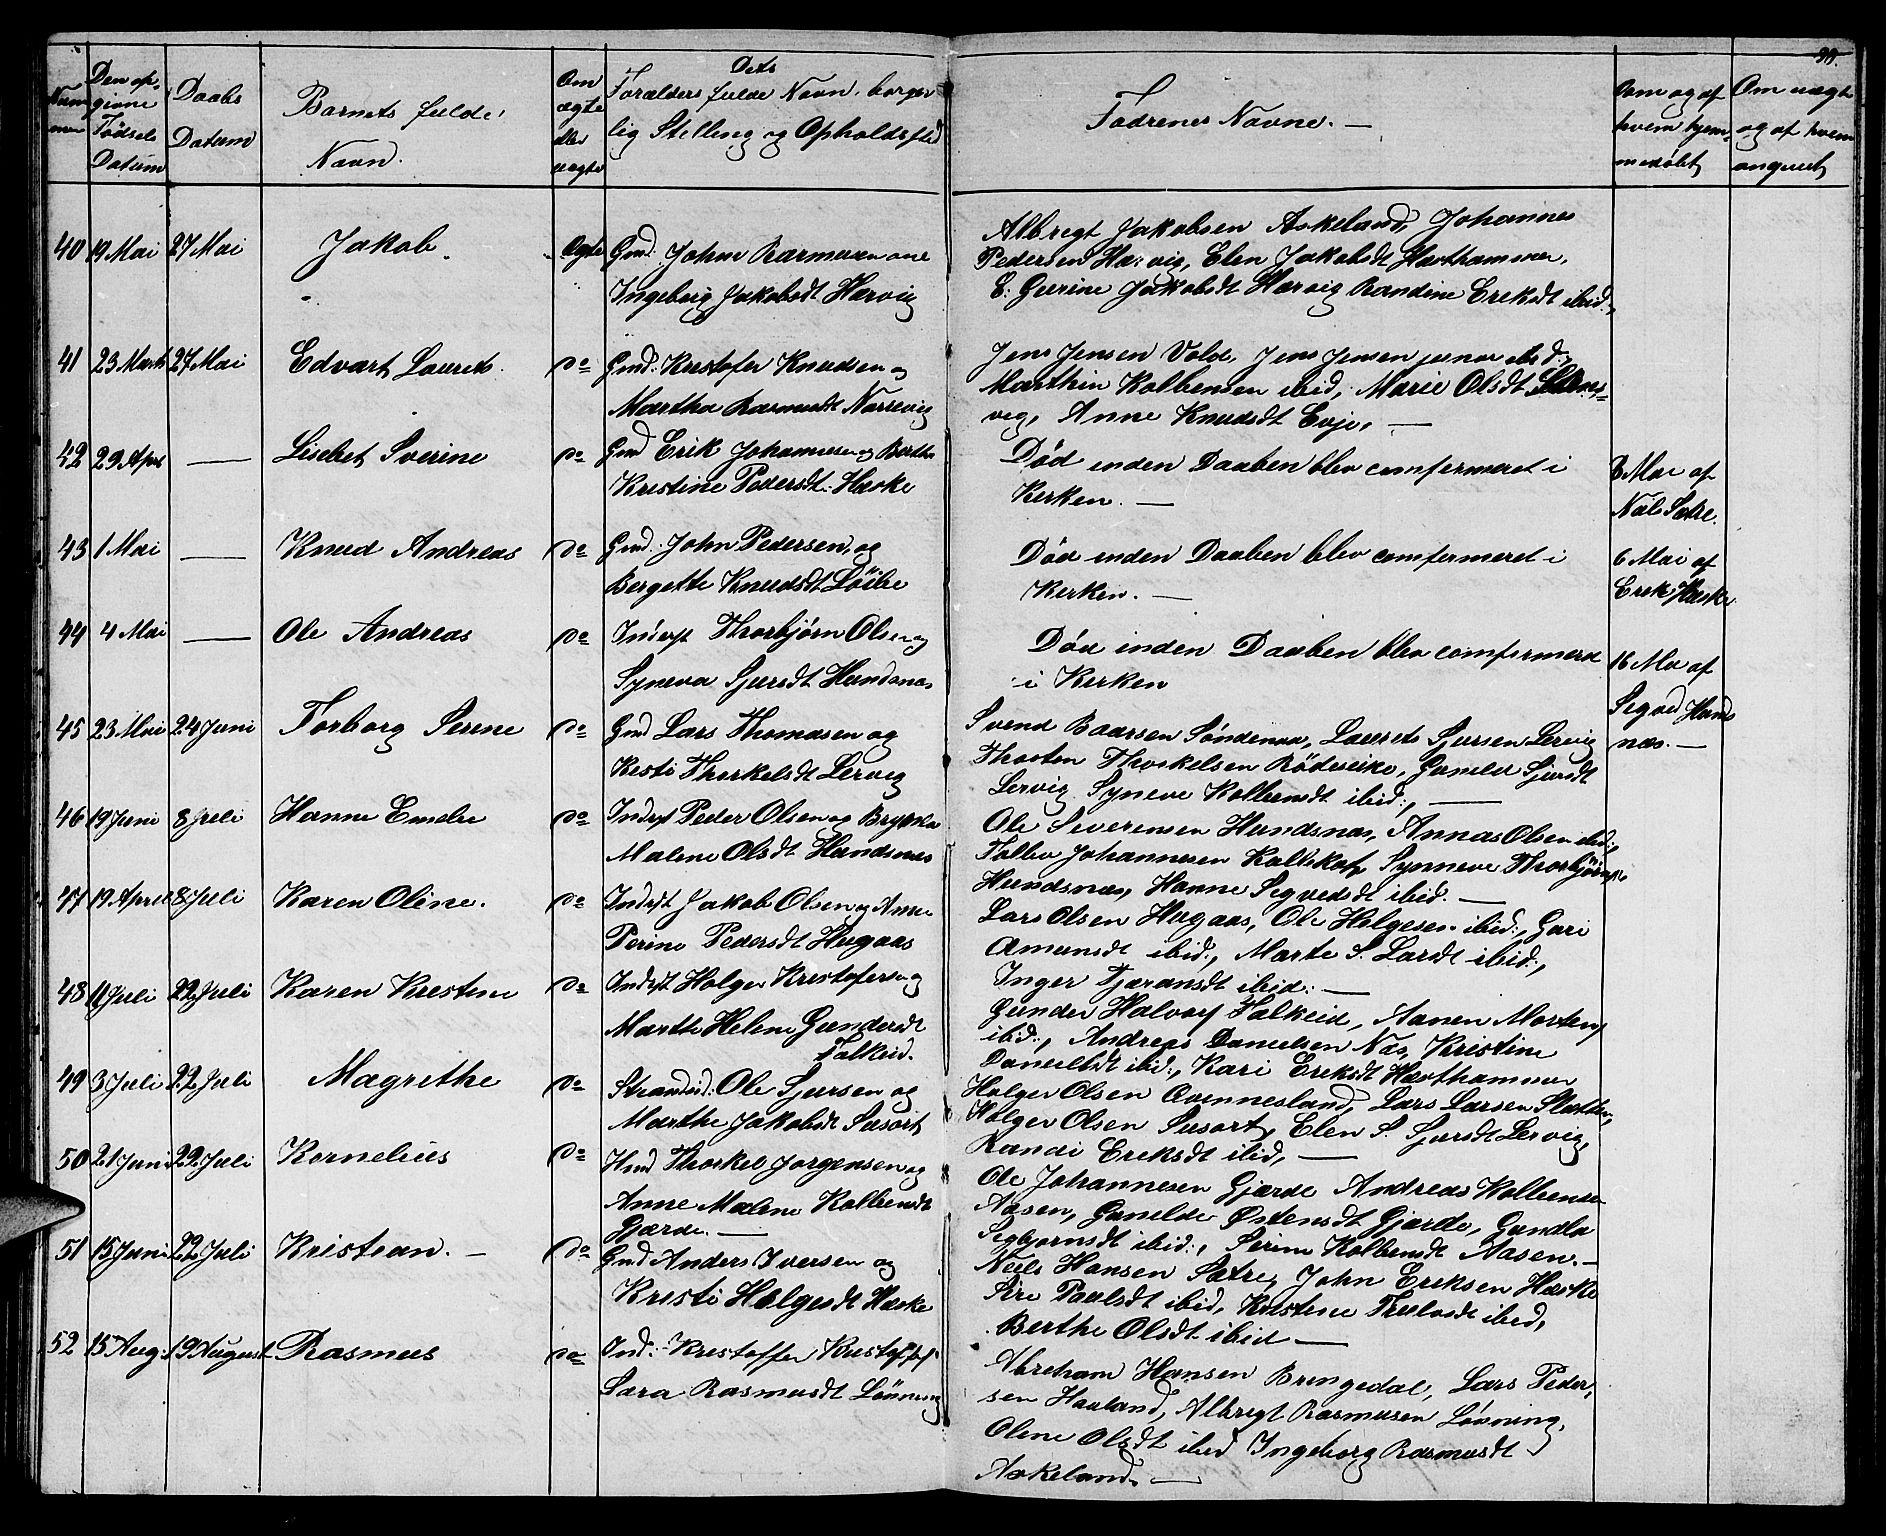 Den op-
givne
Fødsels
Datum
Daabs
Datum
Barnets fulde
Navn.
Om
ægte
eller
uægte
Dets
Forælders fulde Navn, borger-
lig Stelling og Opholdssted
Fadrenes Navne. —
Om og af
hvem hjem-
medøbt
Om uægt
og af hvem
angivet
40 19 Mai 27 Mai Jakob. Ægte Gmd. John Rasmusen og
Ingeborg Jakobsdt Hervig
Albregt Jakobsen Askeland, Johannes
Pedersen Hervig, Elen Jakobsdt Hesthammer,
E. Gurine Jakobsdt Hervig Randine Ereksdt ibid.,
41 23 Marts 27 Mai Edvart Laurets. do Gmd. Kristofer Knudsen og
Martha Rasmusdt Narrevig
Jens Jensen Vold, Jens Jensen junor ibid.,
Marthin Kolbensen ibid, Marie Olsdt
vig, Anne Knudsdt Evje, —
42 29 Apr — Lisebet Sverine do Gmd Erik Johannesen og Berthe
Kristine Pedersdt. Haske
Død inden Daaben blev comfermeret i
Kerken. —
8 Mai af
Nils Sætre.
43 1 Mai — Knud Andreas do Gmd. John Pedersen, og
Bergette Knudsdt Löibe
Død inden Daaben blev comfermeret i
Kerken. —
6 Mai af
Erek Haske
44 4 Mai — Ole Andreas do Inderst Thorbjörn Olsen og
Syneva Sjursdt Hundsnes
Død inden Daaben blev comfermeret
i Kerken
16 Mai af
Segved Hunds
næs. —
45 23 Mai 24 Juni Torborg Serine do Gmd Lars Thomasen og
Kesti Thorkelsdt Lervig
Svend Baarsen Söndenaa, Laurets Sjursen Lervig
Thosten Thorkelsen Rödseike, Gunild Sjursdt
Lervig Syneve Kolbensdt ibid., —
46 19 Juni 8 Juli Hanne Emelie do Inderst Peder Olsen og
Malene Olsdt Hundsnes
Ole Severensen Hundsnas, Annas Olsen ibid.,
Tollev Johannesen Kaltskaf, Synneve Thorbjörns
Hundsnas, Hanne Segvedsdt ibid. —
47 19 April 8 Juli Karen Oline. do Inderst Jakob Olsen og Anne
Perine Pedersdt Hugaas
Lars Olsen Hugaas, Ole Helgesen ibid., Guri
Amunsdt ibid., Marte S. Larsdt ibid.,
Inger Tjæransdt ibid. —
48 11 Juli 22 Juli Karen Kristine do Inderst Holger Kristofersen og
Marthe Helene Gundersdt
Falkeid.
Gunder Halvors Falkeid, Aanen Mortens
ibid., Andreas Danielsen Næs, Kristine
Danielsdt ibid., Kari Ereksdt Hesthammer
49 3 Juli 22 Juli Magrethe do Strandsid. Ole Sjursen og
Marthe Jakobsdt Susort
Holger Olsen Qvennesland, Lars Larsen Slætten,
Holger Olsen Susort, Elen S. Sjursdt Lervig,
Randi Ereksdt ibid, —
50 21 Juni 22 Juli Kornelius do Hmd Thorkel Jorgensen og
Anne Malene Kolbensdt
Gjærde. —
Ole Johannesen Gjærde Andreas Kolbensen
Aasen, Gunelde Østensdt Gjærde, Gunela
Segbjørnsdt ibid., Serine Kolbensdt Aasen. —
51 15 Juni 22 Juli Kristian. — do Gmd Anders Iversen og
Kristi Helgesdt Haske
Neels Hansen Sætre, John Ereksen Haske
Siri Paulsdt ibid, Kristine Trulsdt ibid,
Berthe Olsdt ibid —
52 15 Aug. 19 August Rasmus do Ind. Kristoffer Kristoffers
Sara Rasmusdt Lönning
Abreham Hansen Bringedal, Lars Peder-
sen Haaland, Albregt Rasmusen Lövning,
Olene Olsdt ibid Ingeborg Rasmusdt
Askeland. —